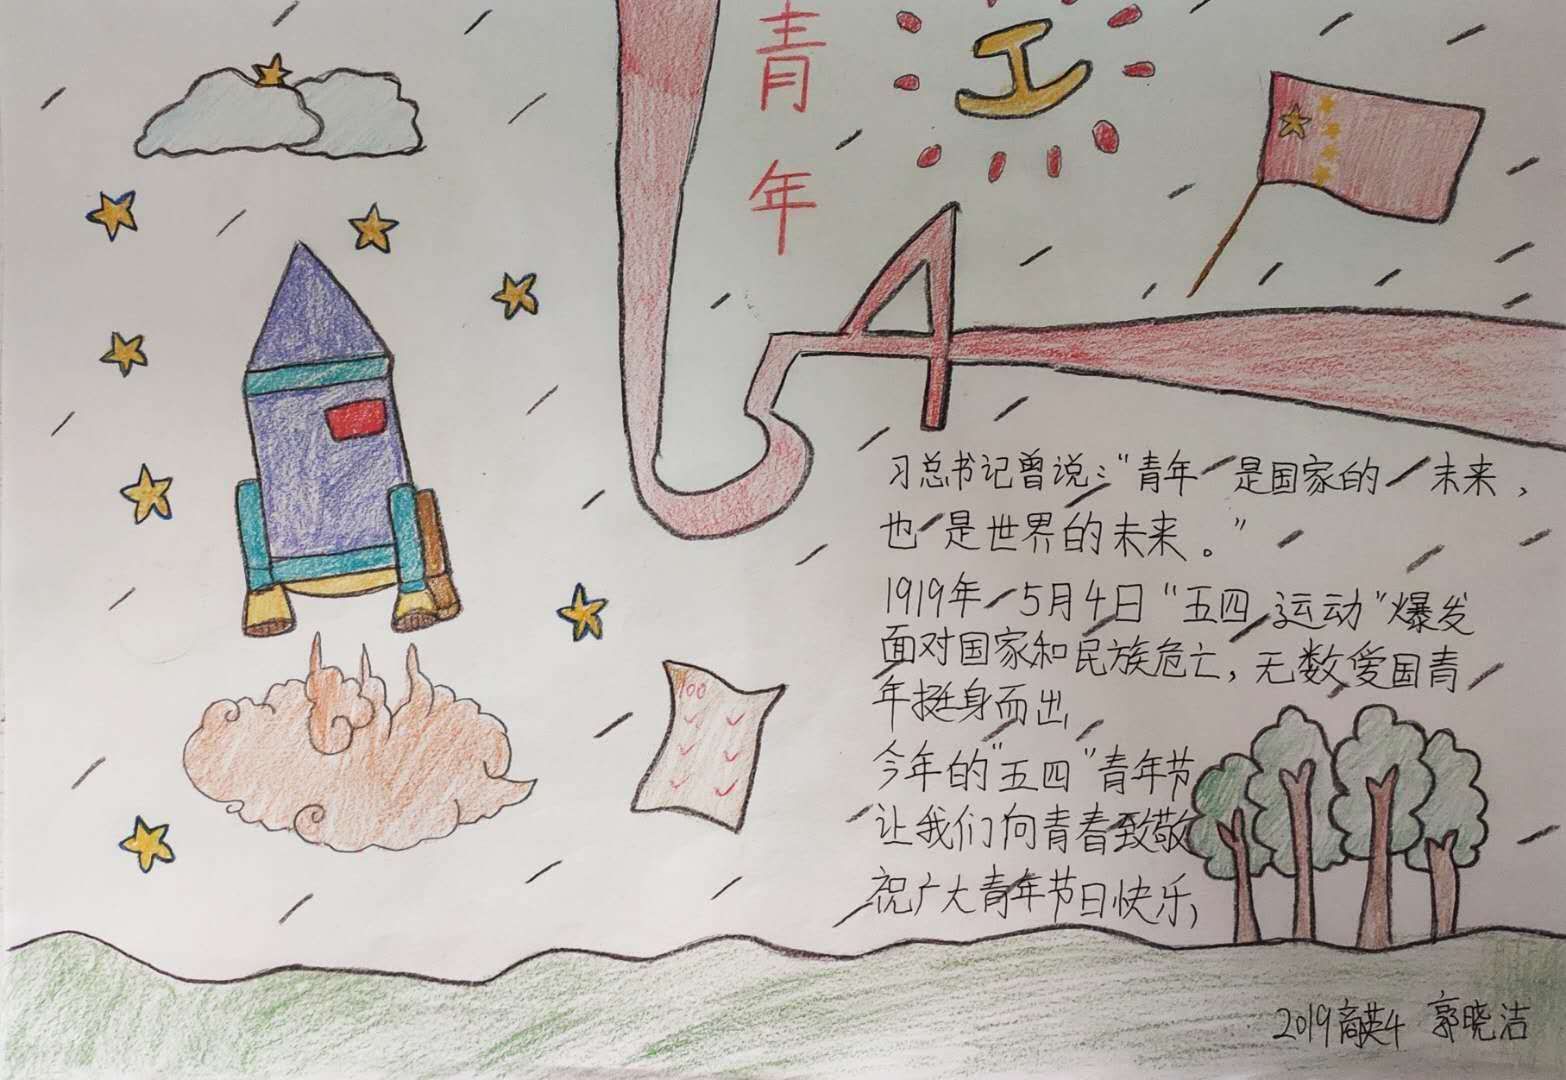 青年
54
习总书记曾说："青年是国家的未来，
也是世界的未来。"
1919年5月4日"五四运动"爆发
面对国家和民族危亡，无数爱国青
年挺身而出
今年的"五四"青年节
让我们向青春致敬
祝广大青年节日快乐，
100
2019商英4 郭晓洁